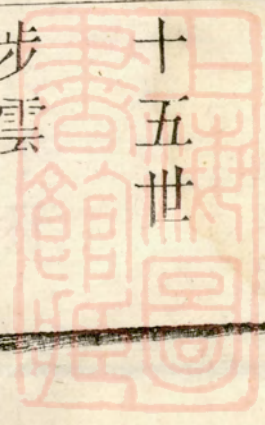 十五世
步雲
上海圖
書館藏